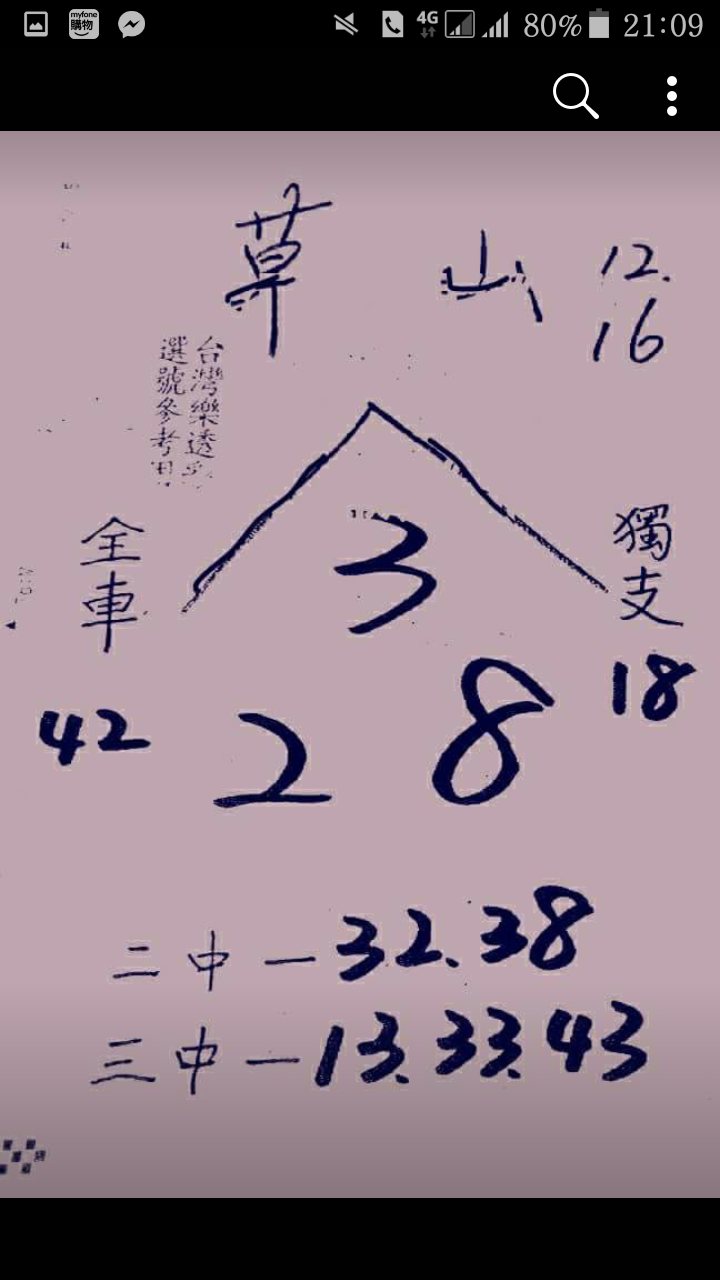 myfone
購物
4G
80%
21:09
草山
12.
16
台灣樂透
選號參考用
全車
獨支
3
42
18
2 8
二中—32.38
三中—13.33.43